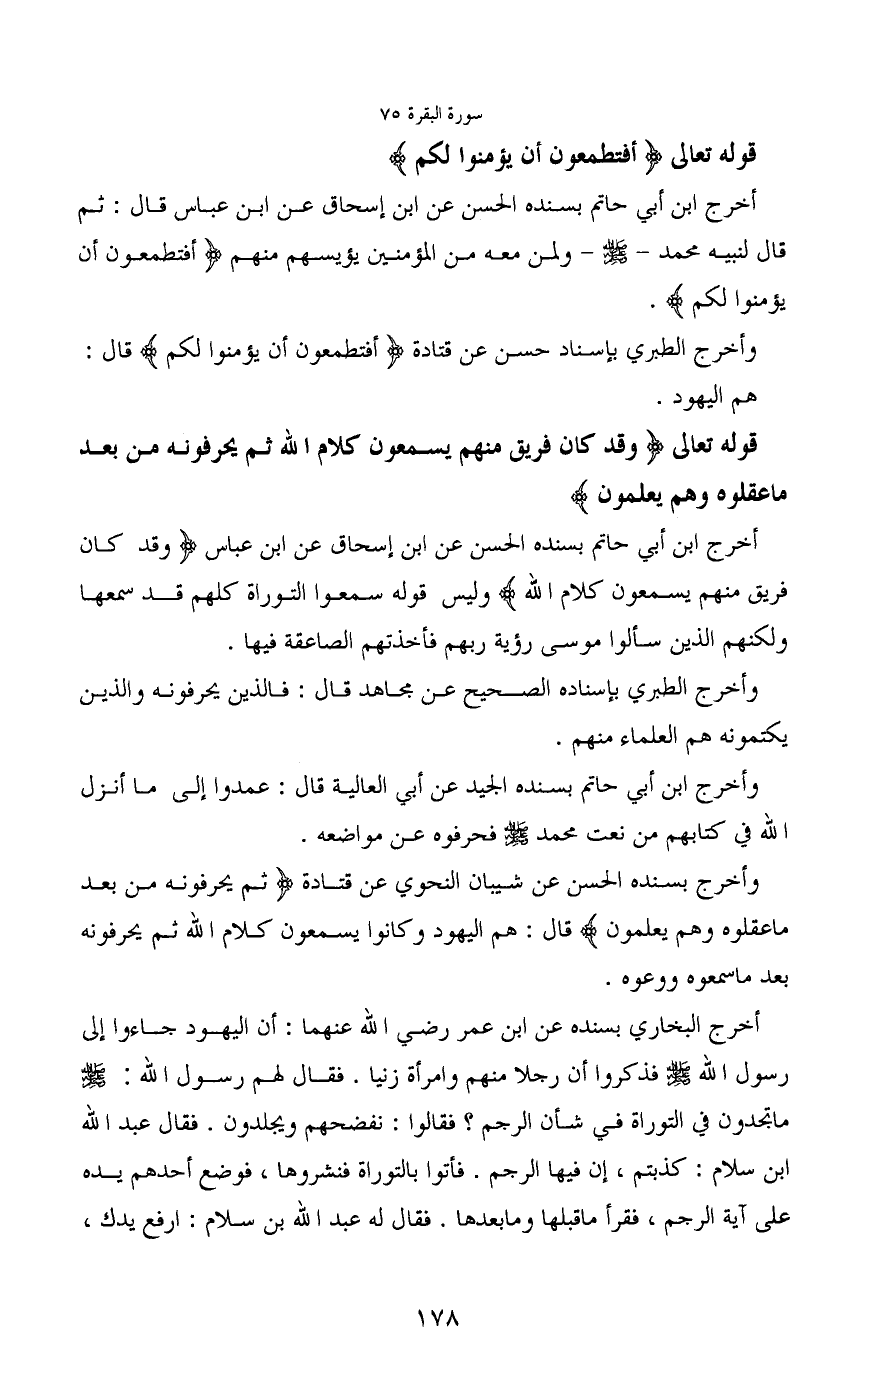 سورة البقرة ٧٥
قوله تعالى ﴿ أفتطمعون أن يؤمنوا لكم ﴾
أخرج ابن أبي حاتم بسنده الحسن عن ابن إسحاق عن ابن عباس قال : ثم
قال لنبيه محمد - ﷺ - ولمن معه من المؤمنين يؤيسهم منهم ﴿ أفتطمعون أن
يؤمنوا لكم ﴾ .
وأخرج الطبري بإسناد حسن عن قتادة ﴿ أفتطمعون أن يؤمنوا لكم ﴾ قال :
هم اليهود .
قوله تعالى ﴿ وقد كان فريق منهم يسمعون كلام الله ثم يحرفونه من بعد
ماعقلوه وهم يعلمون ﴾
أخرج ابن أبي حاتم بسنده الحسن عن ابن إسحاق عن ابن عباس ﴿ وقد كان
فريق منهم يسمعون كلام الله ﴾ وليس قوله سمعوا التوراة كلهم قد سمعها
ولكنهم الذين سألوا موسى رؤية ربهم فأخذتهم الصاعقة فيها .
وأخرج الطبري بإسناده الصحيح عن مجاهد قال : فالذين يحرفونه والذين
يكتمونه هم العلماء منهم .
وأخرج ابن أبي حاتم بسنده الجيد عن أبي العالية قال : عمدوا إلى ما أنزل
الله في كتابهم من نعت محمد ﷺ فحرفوه عن مواضعه .
وأخرج بسنده الحسن عن شيبان النحوي عن قتادة ﴿ ثم يحرفونه من بعد
ماعقلوه وهم يعلمون ﴾ قال : هم اليهود وكانوا يسمعون كلام الله ثم يحرفونه
بعد ماسمعوه ووعوه .
أخرج البخاري بسنده عن ابن عمر رضي الله عنهما : أن اليهود جاءوا إلى
رسول الله ﷺ فذكروا أن رجلا منهم وامرأة زنيا . فقال لهم رسول الله : ﷺ
ماتجدون في التوراة في شأن الرجم ؟ فقالوا : نفضحهم ويجلدون . فقال عبد الله
ابن سلام : كذبتم ، إن فيها الرجم . فأتوا بالتوراة فنشروها ، فوضع أحدهم يده
على آية الرجم ، فقرأ ماقبلها ومابعدها . فقال له عبد الله بن سلام : ارفع يدك ،
١٧٨